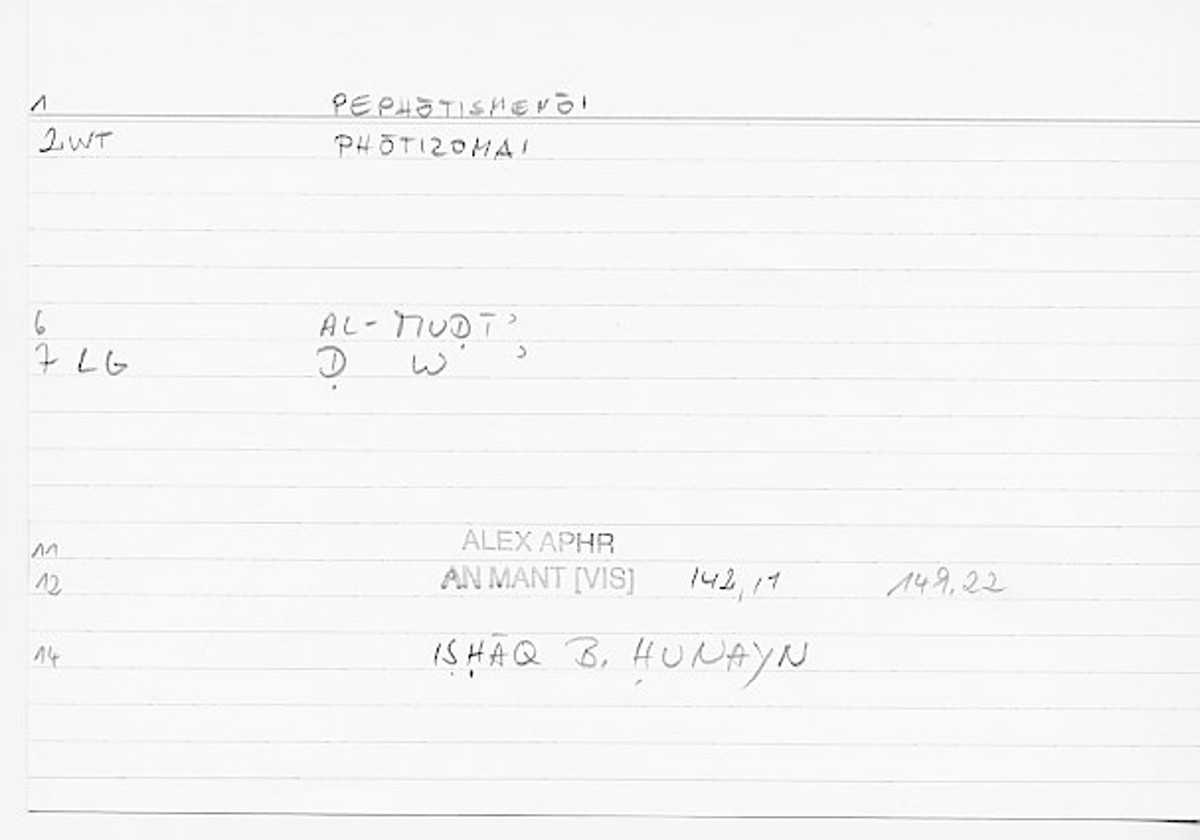 1 PEPHŌTISMENŌI
2WT PHŌTIZOMAI
6 AL-MUḌĪʾ
7 LG Ḍ W ʾ
11 ALEX APHR
12 AN MANT [VIS] 142,11 149.22
14 IṢḤĀQ B. ḤUNAYN